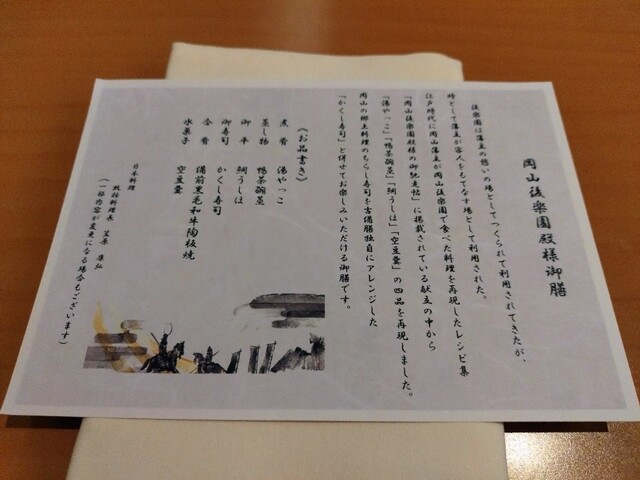 岡山後楽園殿様御膳
後楽園は藩主の憩いの場としてつくられて利用されてきたが、
時として藩主が客人をもてなす場として利用された。
江戸時代に岡山藩主が岡山後楽園で食べた料理を再現したレシピ集
「岡山後楽園殿様の御馳走帖」に掲載されている献立の中から
「湯やっこ」「鴨茶碗蒸」「鯛うしほ」「空豆羹」の四品を再現しました。
岡山の郷土料理のちらし寿司を吉備膳独自にアレンジした
「かくし寿司」と併せてお楽しみいただける御膳です。
《お品書き》
煮肴 湯やっこ
蒸し物 鴨茶碗蒸
御本 鯛うしほ
御寿司 かくし寿司
合肴 備前黒毛和牛陶板焼
水菓子 空豆羹
日本料理
料理長 笠原 康弘
(一部内容が変更になる場合もございます)